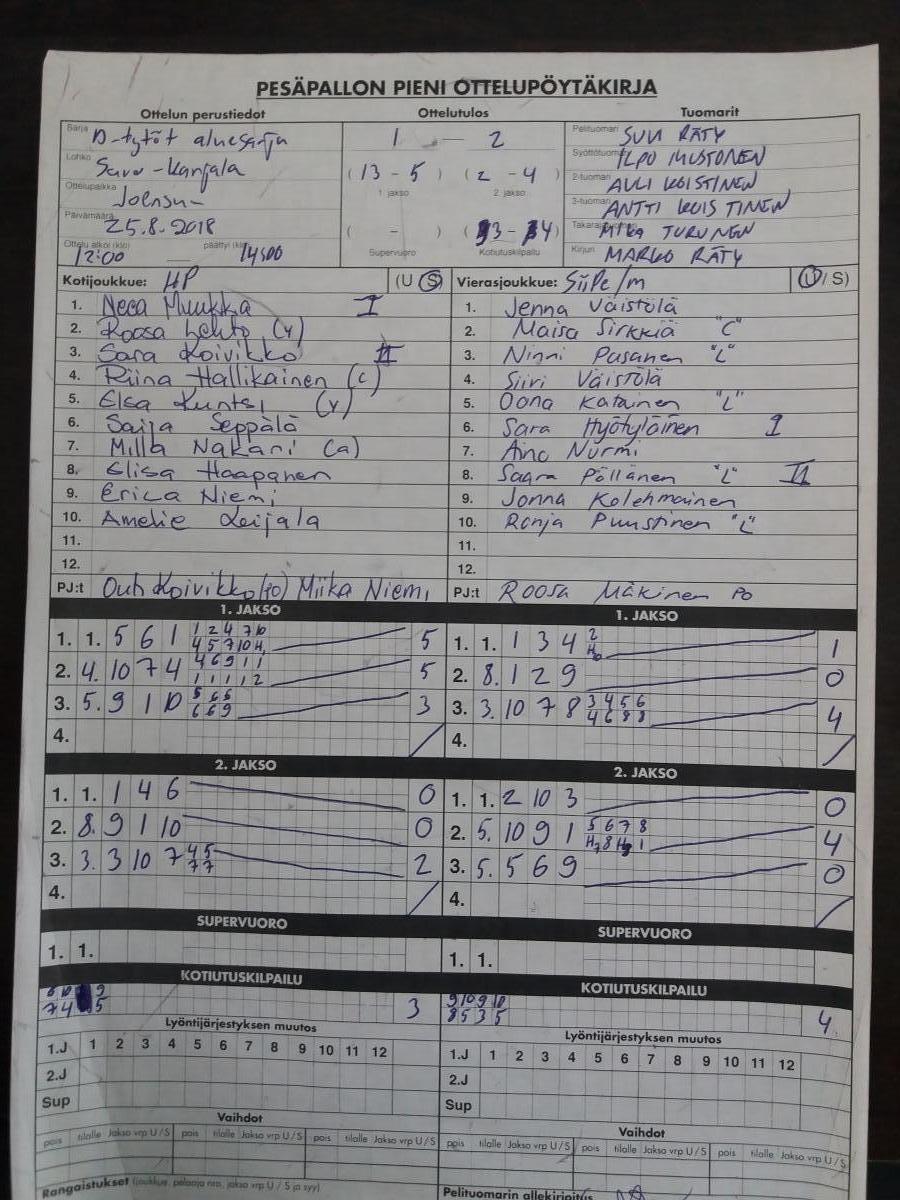 PESÄPALLON PIENI OTTELUPÖYTÄKIRJA
Ottelun perustiedot Ottelutulos Tuomarit
Sarja D-tytöt aluesarja
Lohko Savo-Karjala
Ottelupaikka Joensuu
Päivämäärä 25.8.2018
Ottelu alkoi (klo) 12:00 päättyi (klo) 14:00
1 - 2
(13 - 5) (2 - 4)
1 jakso 2. jakso
( - ) (3 - 4)
Supervuoro Kotiutuskilpailu
Pelituomari SUVI RÄTY
Syöttötuomari ILPO MUSTONEN
2-tuomari AULI KOISTINEN
3-tuomari ANTTI KOISTINEN
Takarajatuomari MIKA TURUNEN
Kirjuri MARKO RÄTY
Kotijoukkue: HP (U/S)
1. Neea Muukka I
2. Roosa Lehto (v)
3. Sara Koivikko II
4. Riina Hallikainen (c)
5. Elsa Kuntsi (v)
6. Saija Seppälä
7. Milla Nakari (a)
8. Elisa Haapanen
9. Erica Niemi
10. Amelie Leijala
11.
12.
PJ:t Outi Koivikko (po) Miika Niemi
Vierasjoukkue: SiiPe/m (U/S)
1. Jenna Väistölä
2. Maisa Sirkkiä "C"
3. Ninni Pasanen "L"
4. Siiri Väistölä
5. Oona Katainen "L"
6. Sara Hyötyläinen I
7. Aino Nurmi
8. Saara Pöllänen "L" II
9. Jonna Kolehmainen
10. Ronja Puustinen "L"
11.
12.
PJ:t Roosa Mäkinen PO
1. JAKSO
1. 1. 5 6 1 1 2 4 7 10 5
4 5 7 10 H1
2. 4. 10 7 4 4 6 9 1 1 5
1 1 1 1 2
3. 5. 9 1 10 5 6 6 3
6 6 9
4.
1. JAKSO
1. 1. 1 3 4 2 1
H10
2. 8. 1 2 9 0
3. 3. 10 7 8 3 4 5 6 4
4 6 8 8
4.
2. JAKSO
1. 1. 1 4 6 0
2. 8. 9 1 10 0
3. 3. 3 10 7 4 5 2
7 7
4.
2. JAKSO
1. 1. 2 10 3 0
2. 5. 10 9 1 5 6 7 8 4
H7 8 H9 1
3. 5. 5 6 9 0
4.
SUPERVUORO
1. 1.
SUPERVUORO
1. 1.
KOTIUTUSKILPAILU
8 10 9 3
7 4 5
KOTIUTUSKILPAILU
9 10 9 10 4
8 5 3 5
Lyöntijärjestyksen muutos
1.J 1 2 3 4 5 6 7 8 9 10 11 12
2.J
Sup
Lyöntijärjestyksen muutos
1.J 1 2 3 4 5 6 7 8 9 10 11 12
2.J
Sup
Vaihdot
pois tilalle Jakso vrp U/S pois tilalle Jakso vrp U/S pois tilalle Jakso vrp U/S
Vaihdot
pois tilalle Jakso vrp U/S pois tilalle Jakso vrp U/S pois tilalle Jakso vrp U/S
Rangaistukset (joukkue, pelaaja nro, jakso vrp U/S ja syy)
Pelituomarin allekirjoitus